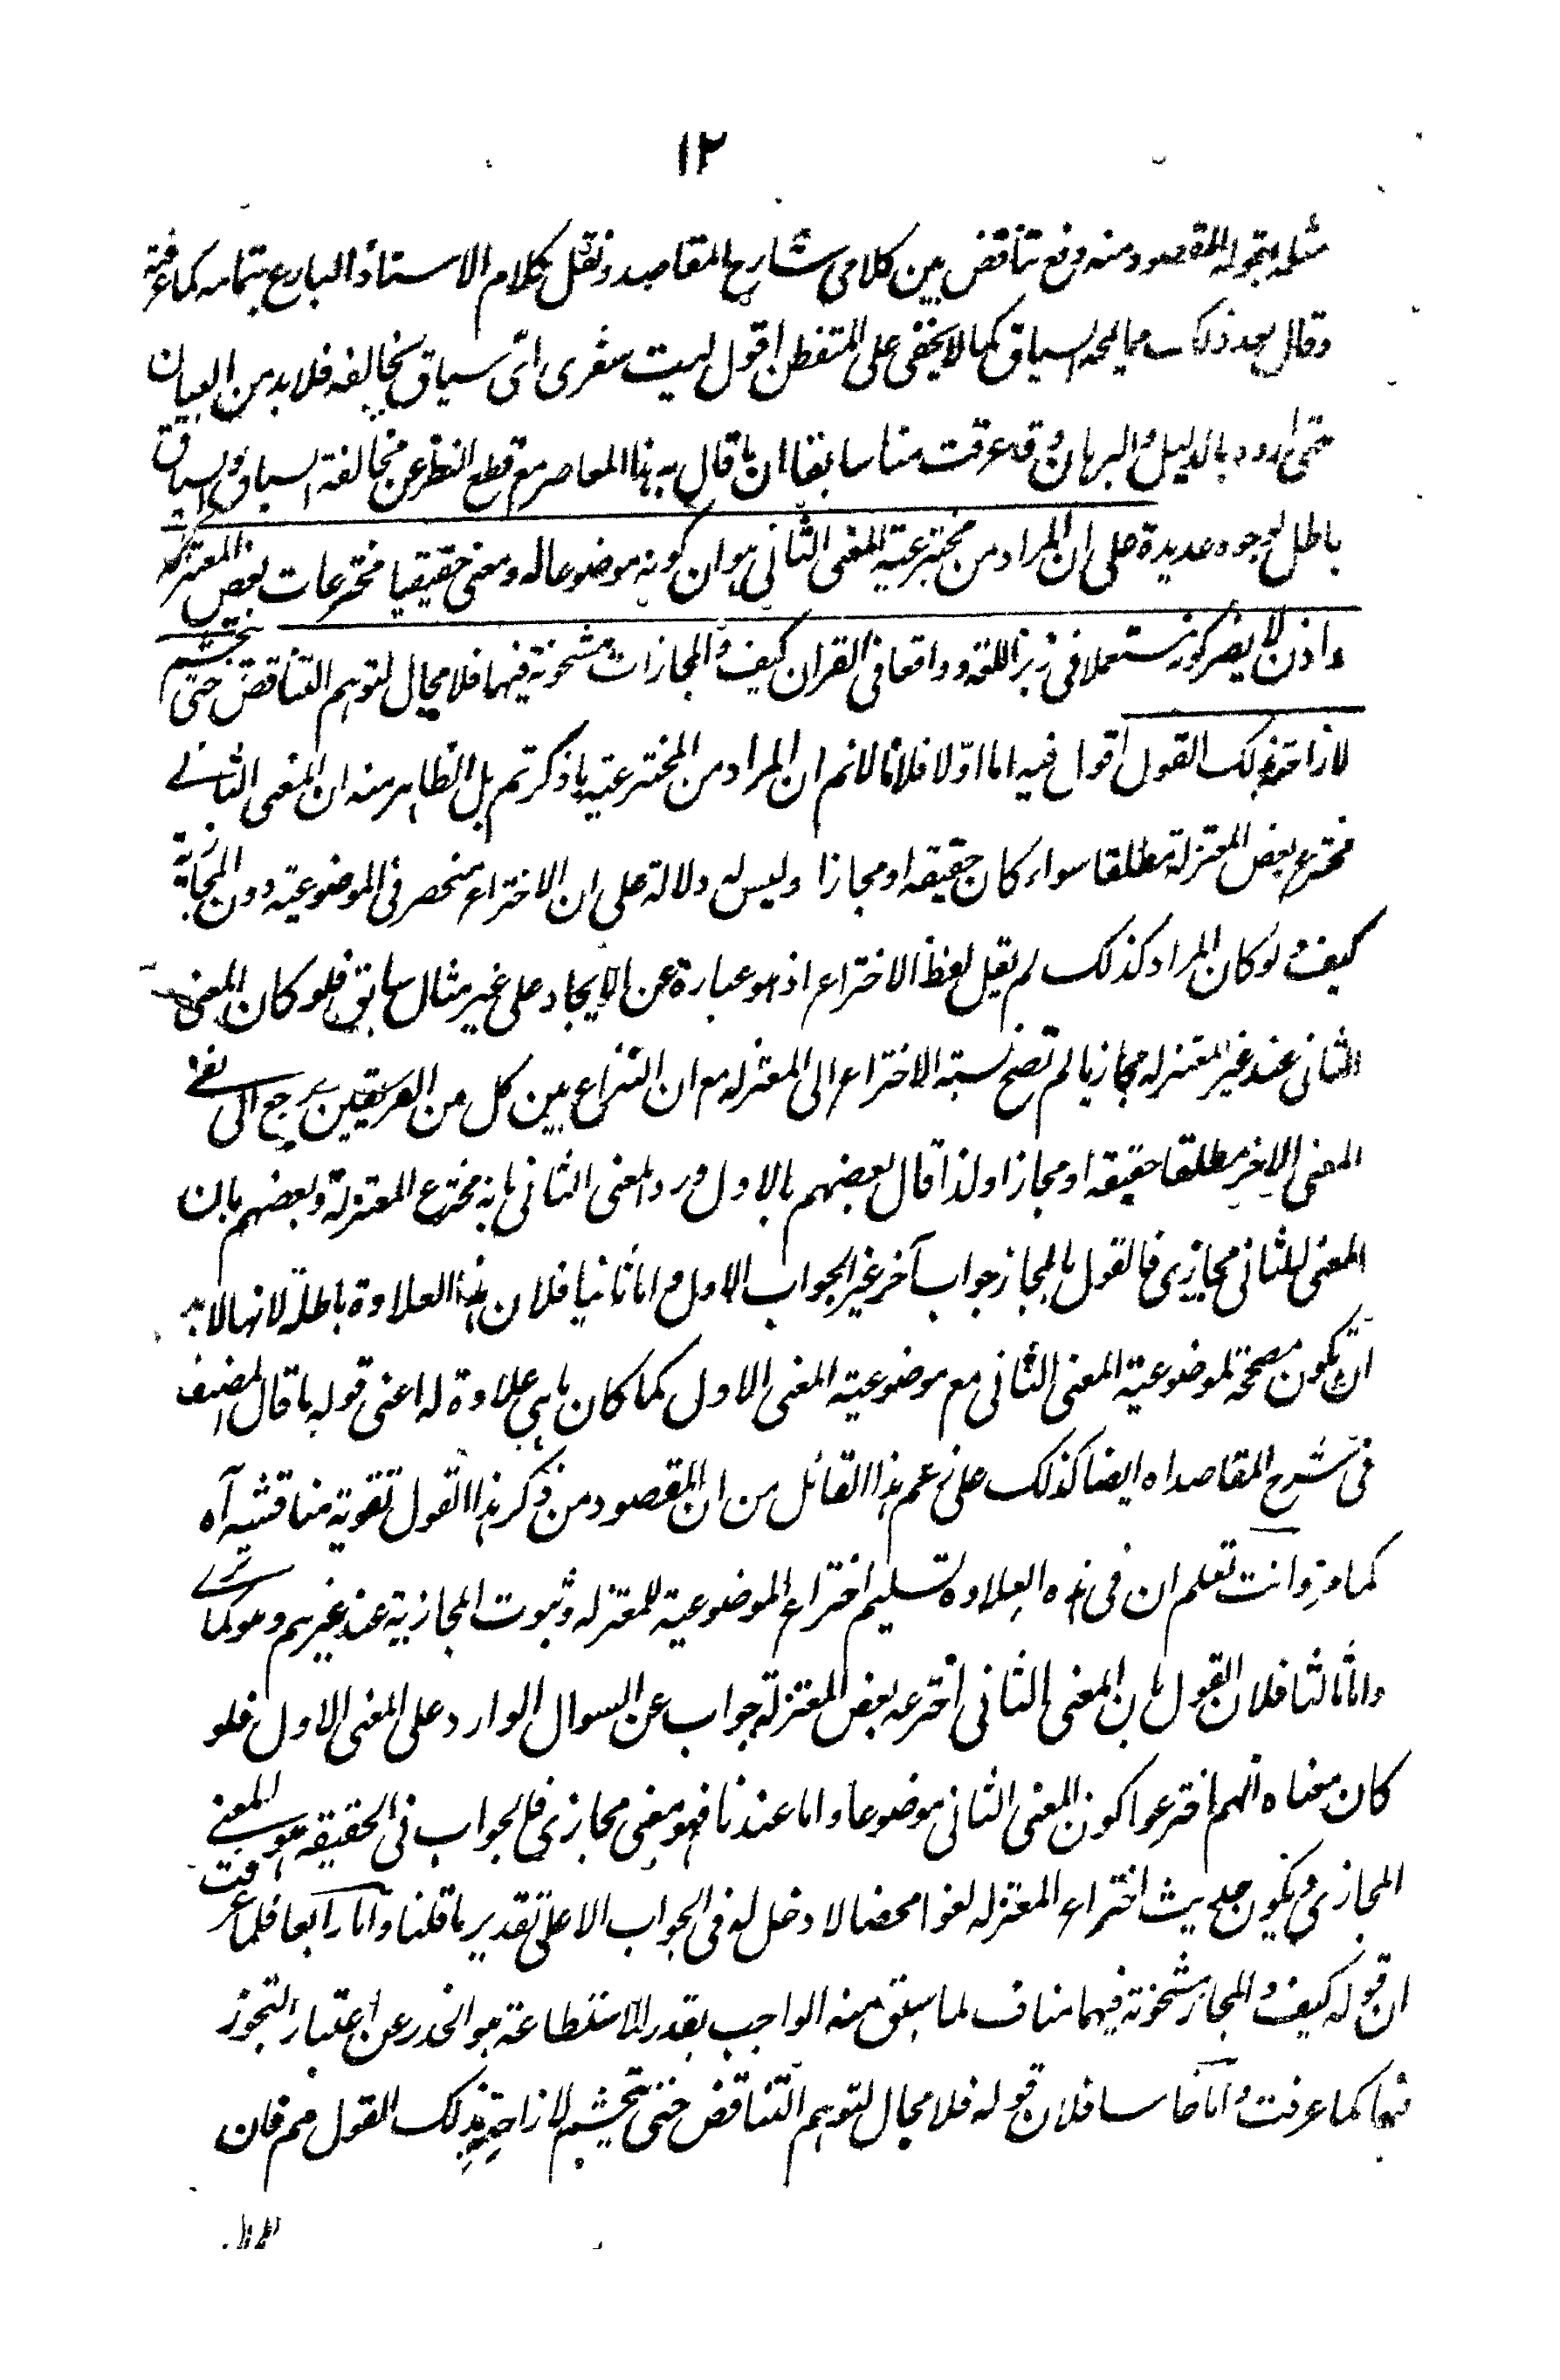 ١٢
مثله بقوله المقصود منه دفع تناقض بين كلامى شارح المقاصد ونقل كلام الاستاذ البارع بتمامه كما عرفته
وقال بعد ذلك مما يمجه السياق كما لا يخفى على المتفطن اقول ليت شعرى اىّ سياق يخالفه فلا بد من البيان
حتى اردده بالدليل والبرهان وقد عرفت منا سابقا ان ما قال به هذا المعاصر مع قطع النظر عن مخالفة السباق والسياق
باطل لوجوه عديدة على ان المراد من مخترعية المعنى الثانى هو ان كونه موضوعا له ومعنى حقيقيا مخترعات بعض المعتزلة
واذن لا يضر كونه مستعملا فى زبر اللغة وواقعا فى القران كيف والمجازات مشحونة فيهما فلا مجال لتوهم التناقض حتى يتجشم
لازاحته بذلك القول اقول فيه اما اوّلا فلانا لانم ان المراد من المخترعية ما ذكرتم بل الظاهر منه ان المعنى الثانى
مخترع بعض المعتزلة مطلقا سواء كان حقيقه او مجازا وليس له دلالة على ان الاختراع منحصر فى الموضوعية دون المجازية
كيف ولو كان المراد كذلك لم يقل لفظ الاختراع اذ هو عبارة عن الايجاد على غير مثال سابق فلو كان المعنى
الثانى عند غير المعتزله مجازيا لم تصح نسبة الاختراع الى المعتزله مع ان النزاع بين كل من الفريقين يرجع الى نفى
المعنى الاخر مطلقا حقيقه او مجازا ولذا قال بعضهم بالاول ورد المعنى الثانى بانه مخترع المعتزلة وبعضهم بان
المعنى الثانى مجازى فالقول بالمجاز جواب آخر غير الجواب الاول واما ثانيا فلان هذه العلاوة باطلة لانها لا بد
ان تكون مصححة لموضوعية المعنى الثانى مع موضوعية المعنى الاول كما كان ما هى علاوة له اعنى قوله ما قال المصنف
فى شرح المقاصد اه ايضا كذلك على زعم هذا القائل من ان المقصود من ذكر هذا القول تقوية مناقشيه آه
كما مر وانت تعلم ان فى هذه العلاوة تسليم اختراع الموضوعية للمعتزله وثبوت المجازية عند غيرهم وهو كما ترى
واما ثالثا فلان القول بان المعنى الثانى اخترعه بعض المعتزلة جواب عن السوال الوارد على المعنى الاول فلو
كان معناه انهم اخترعوا كون المعنى الثانى موضوعا واما عندنا فهو معنى مجازى فالجواب فى الحقيقه هو المعنى
المجازى ويكون حديث اختراع المعتزله لغوا محضا لا دخل له فى الجواب الا على تقدير ما قلنا واما رابعا فلما عرفت
ان قوله كيف والمجاز مشحونة فيهما مناف لما سبق منه الواجب بقدر الاستطاعة هو الحذر عن اعتبار التجوز
فيها كما عرفت واما خامسا فلان قوله فلا مجال لتوهم التناقض حتى يتجشم لازاحته بذلك القول مم فان